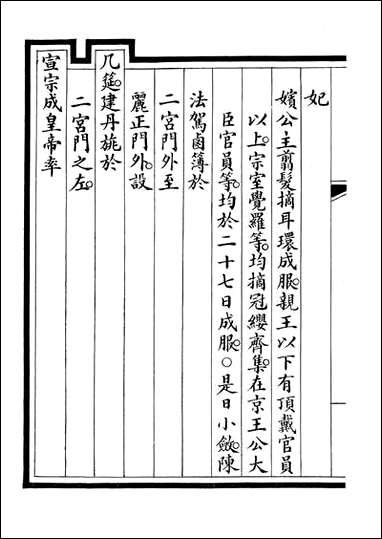 妃
嬪公主翦髮摘耳環成服。親王以下有頂戴官員
以上。宗室覺羅等。均摘冠纓齊集。在京王公大
臣官員等。均於二十七日成服。○是日小斂。陳
法駕鹵簿於
二宮門外至
麗正門外。設
几筵。建丹旐於
二宮門之左。
宣宗成皇帝率